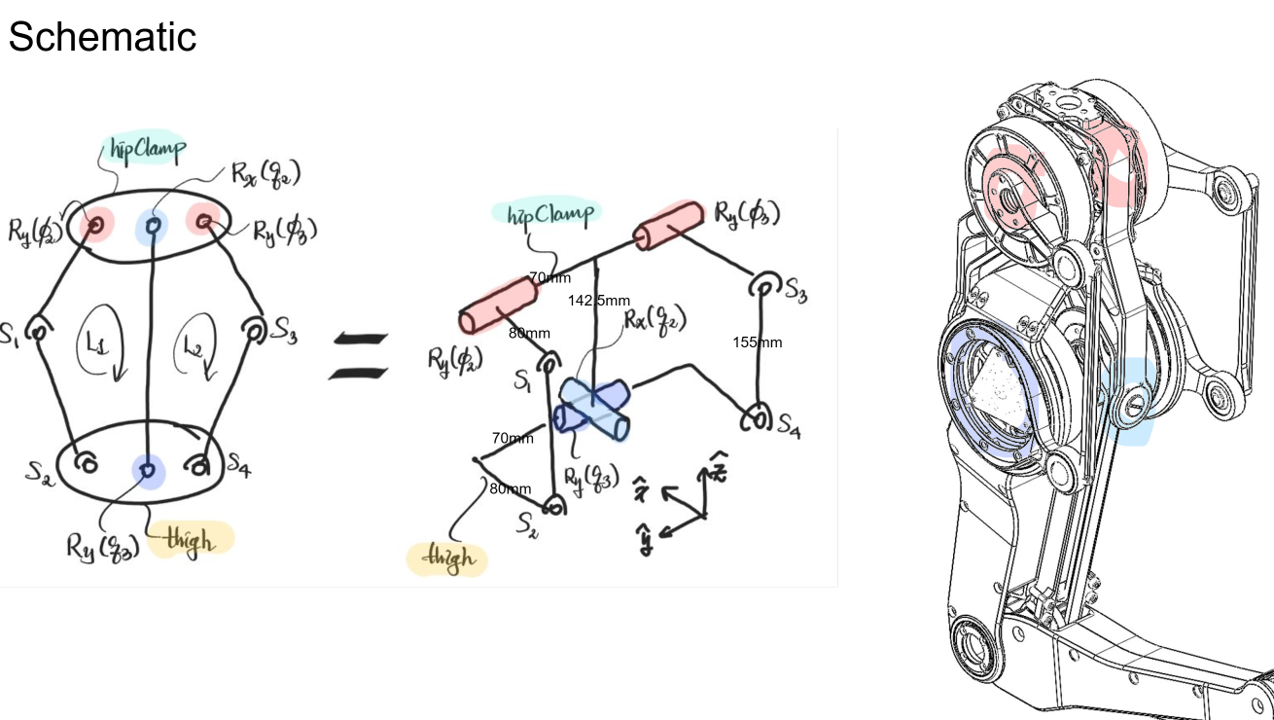 Schematic
hipClamp
Rx(q2)
Ry(ϕ2)
Ry(ϕ3)
S1
S3
L1
L2
S2
S4
Ry(q3)
thigh
=
hipClamp
Ry(ϕ3)
70mm
142.5mm
S3
Rx(q2)
80mm
155mm
Ry(ϕ2)
S1
S4
70mm
Ry(q3)
80mm
S2
x̂
ẑ
ŷ
thigh